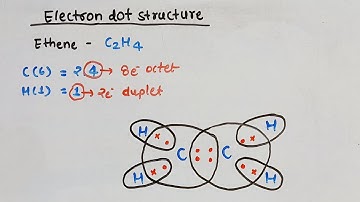 Electron dot structure
Ethene - C2H4
C(6) = 2 4 → 8e⁻ octet
H(1) = 1 → 2e⁻ duplet
H H
C C
H H